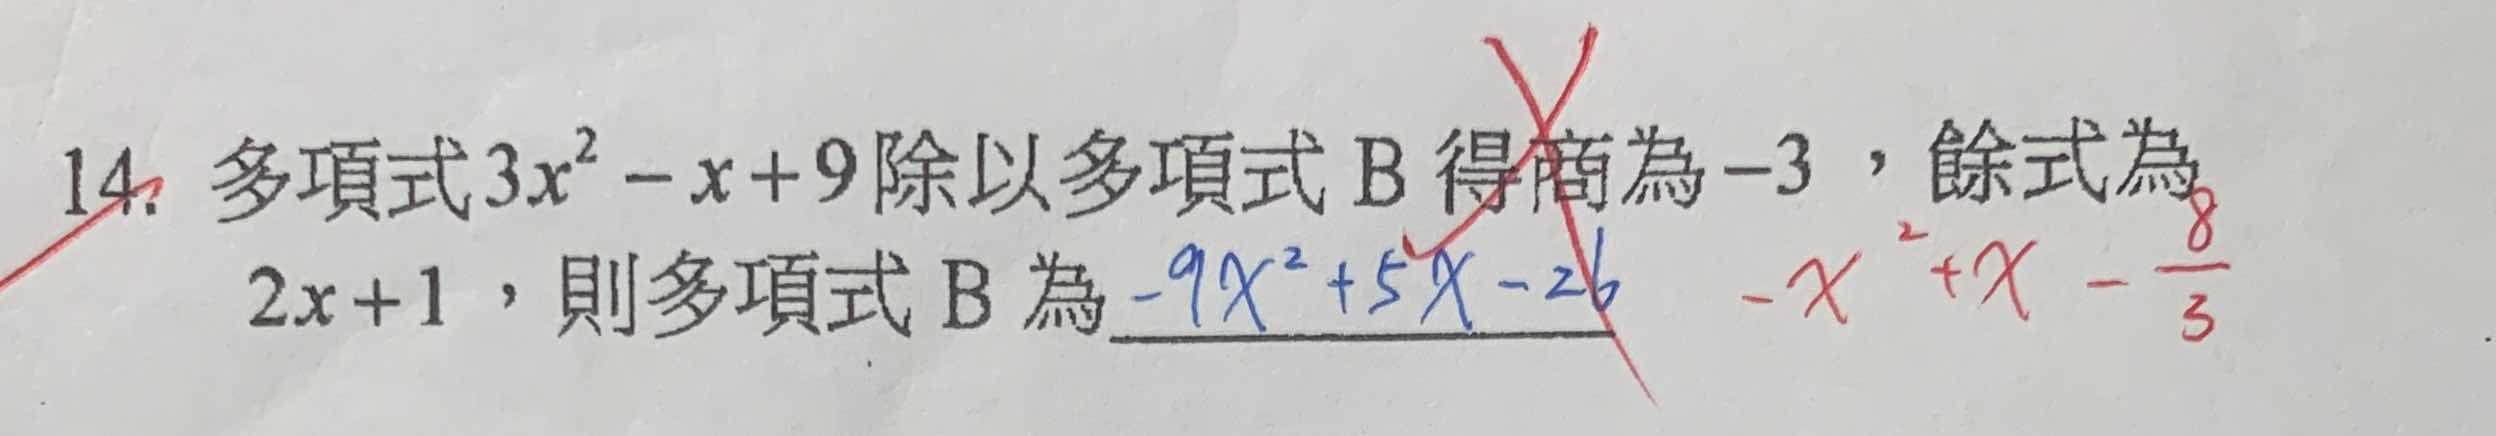 14. 多項式3x²−x+9除以多項式 B 得商為−3，餘式為
2x+1，則多項式 B 為 -9x²+5x-26 -x²+x-8/3